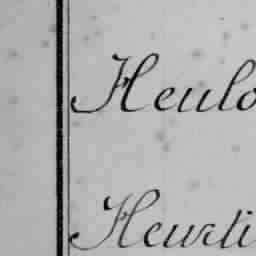 Heulo
Heurti